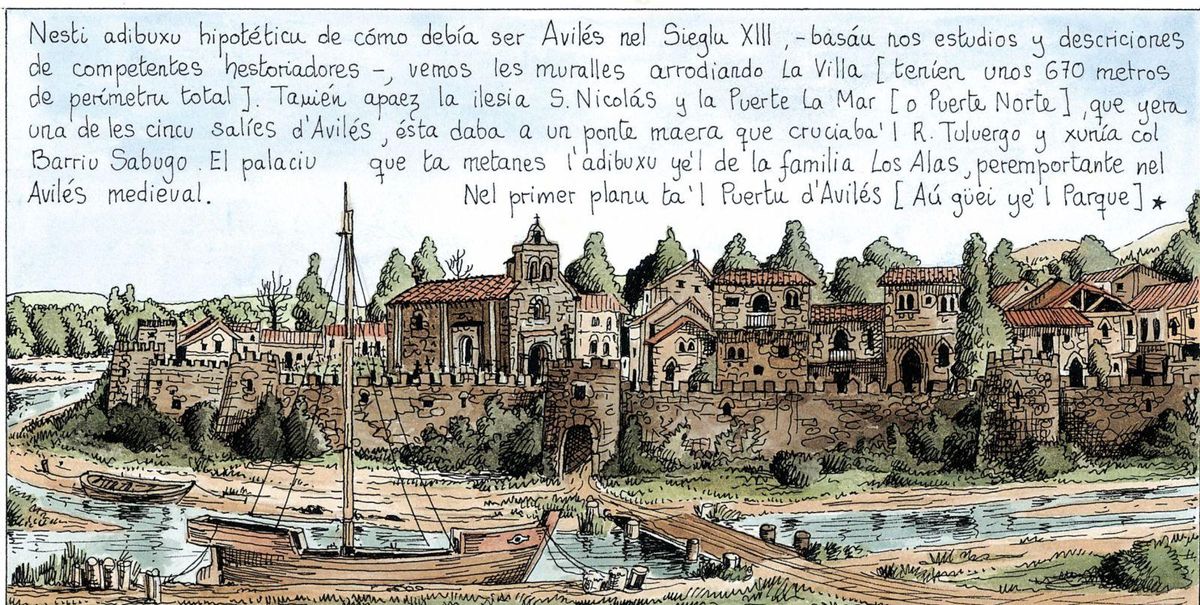 Nesti adibuxu hipotéticu de cómo debía ser Avilés nel Sieglu XIII, -basáu nos estudios y descriciones
de competentes hestoriadores -, vemos les muralles arrodiando La Villa [teníen unos 670 metros
de perímetru total]. Tamién apaez la ilesia S. Nicolás y la Puerte La Mar [o Puerte Norte], que yera
una de les cincu salíes d'Avilés, ésta daba a un ponte maera que cruciaba'l R. Tuluergo y xunía col
Barriu Sabugo. El palaciu que ta metanes l'adibuxu ye'l de la familia Los Alas, peremportante nel
Avilés medieval. Nel primer planu ta'l Puertu d'Avilés [Aú güei ye'l Parque] ★